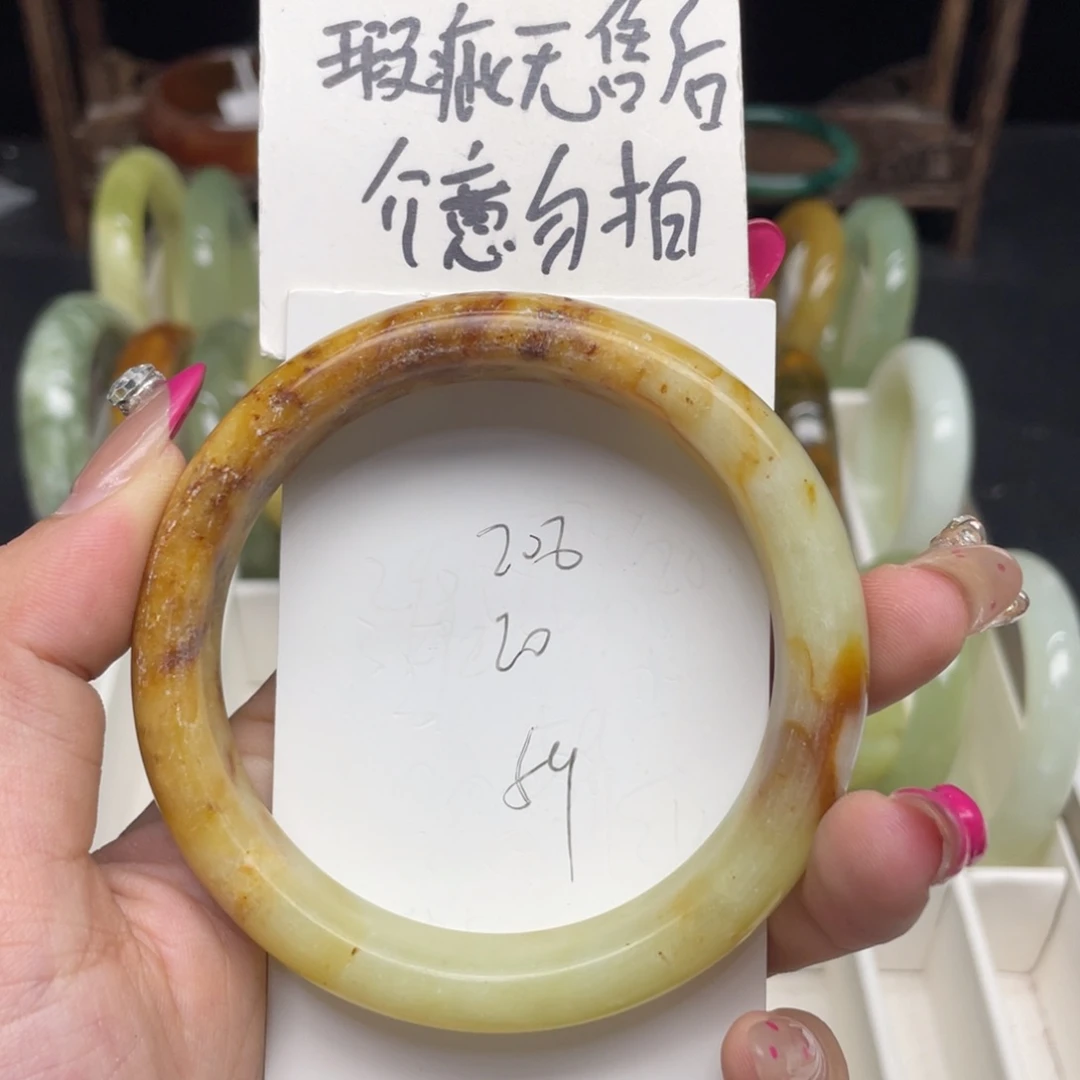 瑕疵无售后
介意勿拍
206
20
54